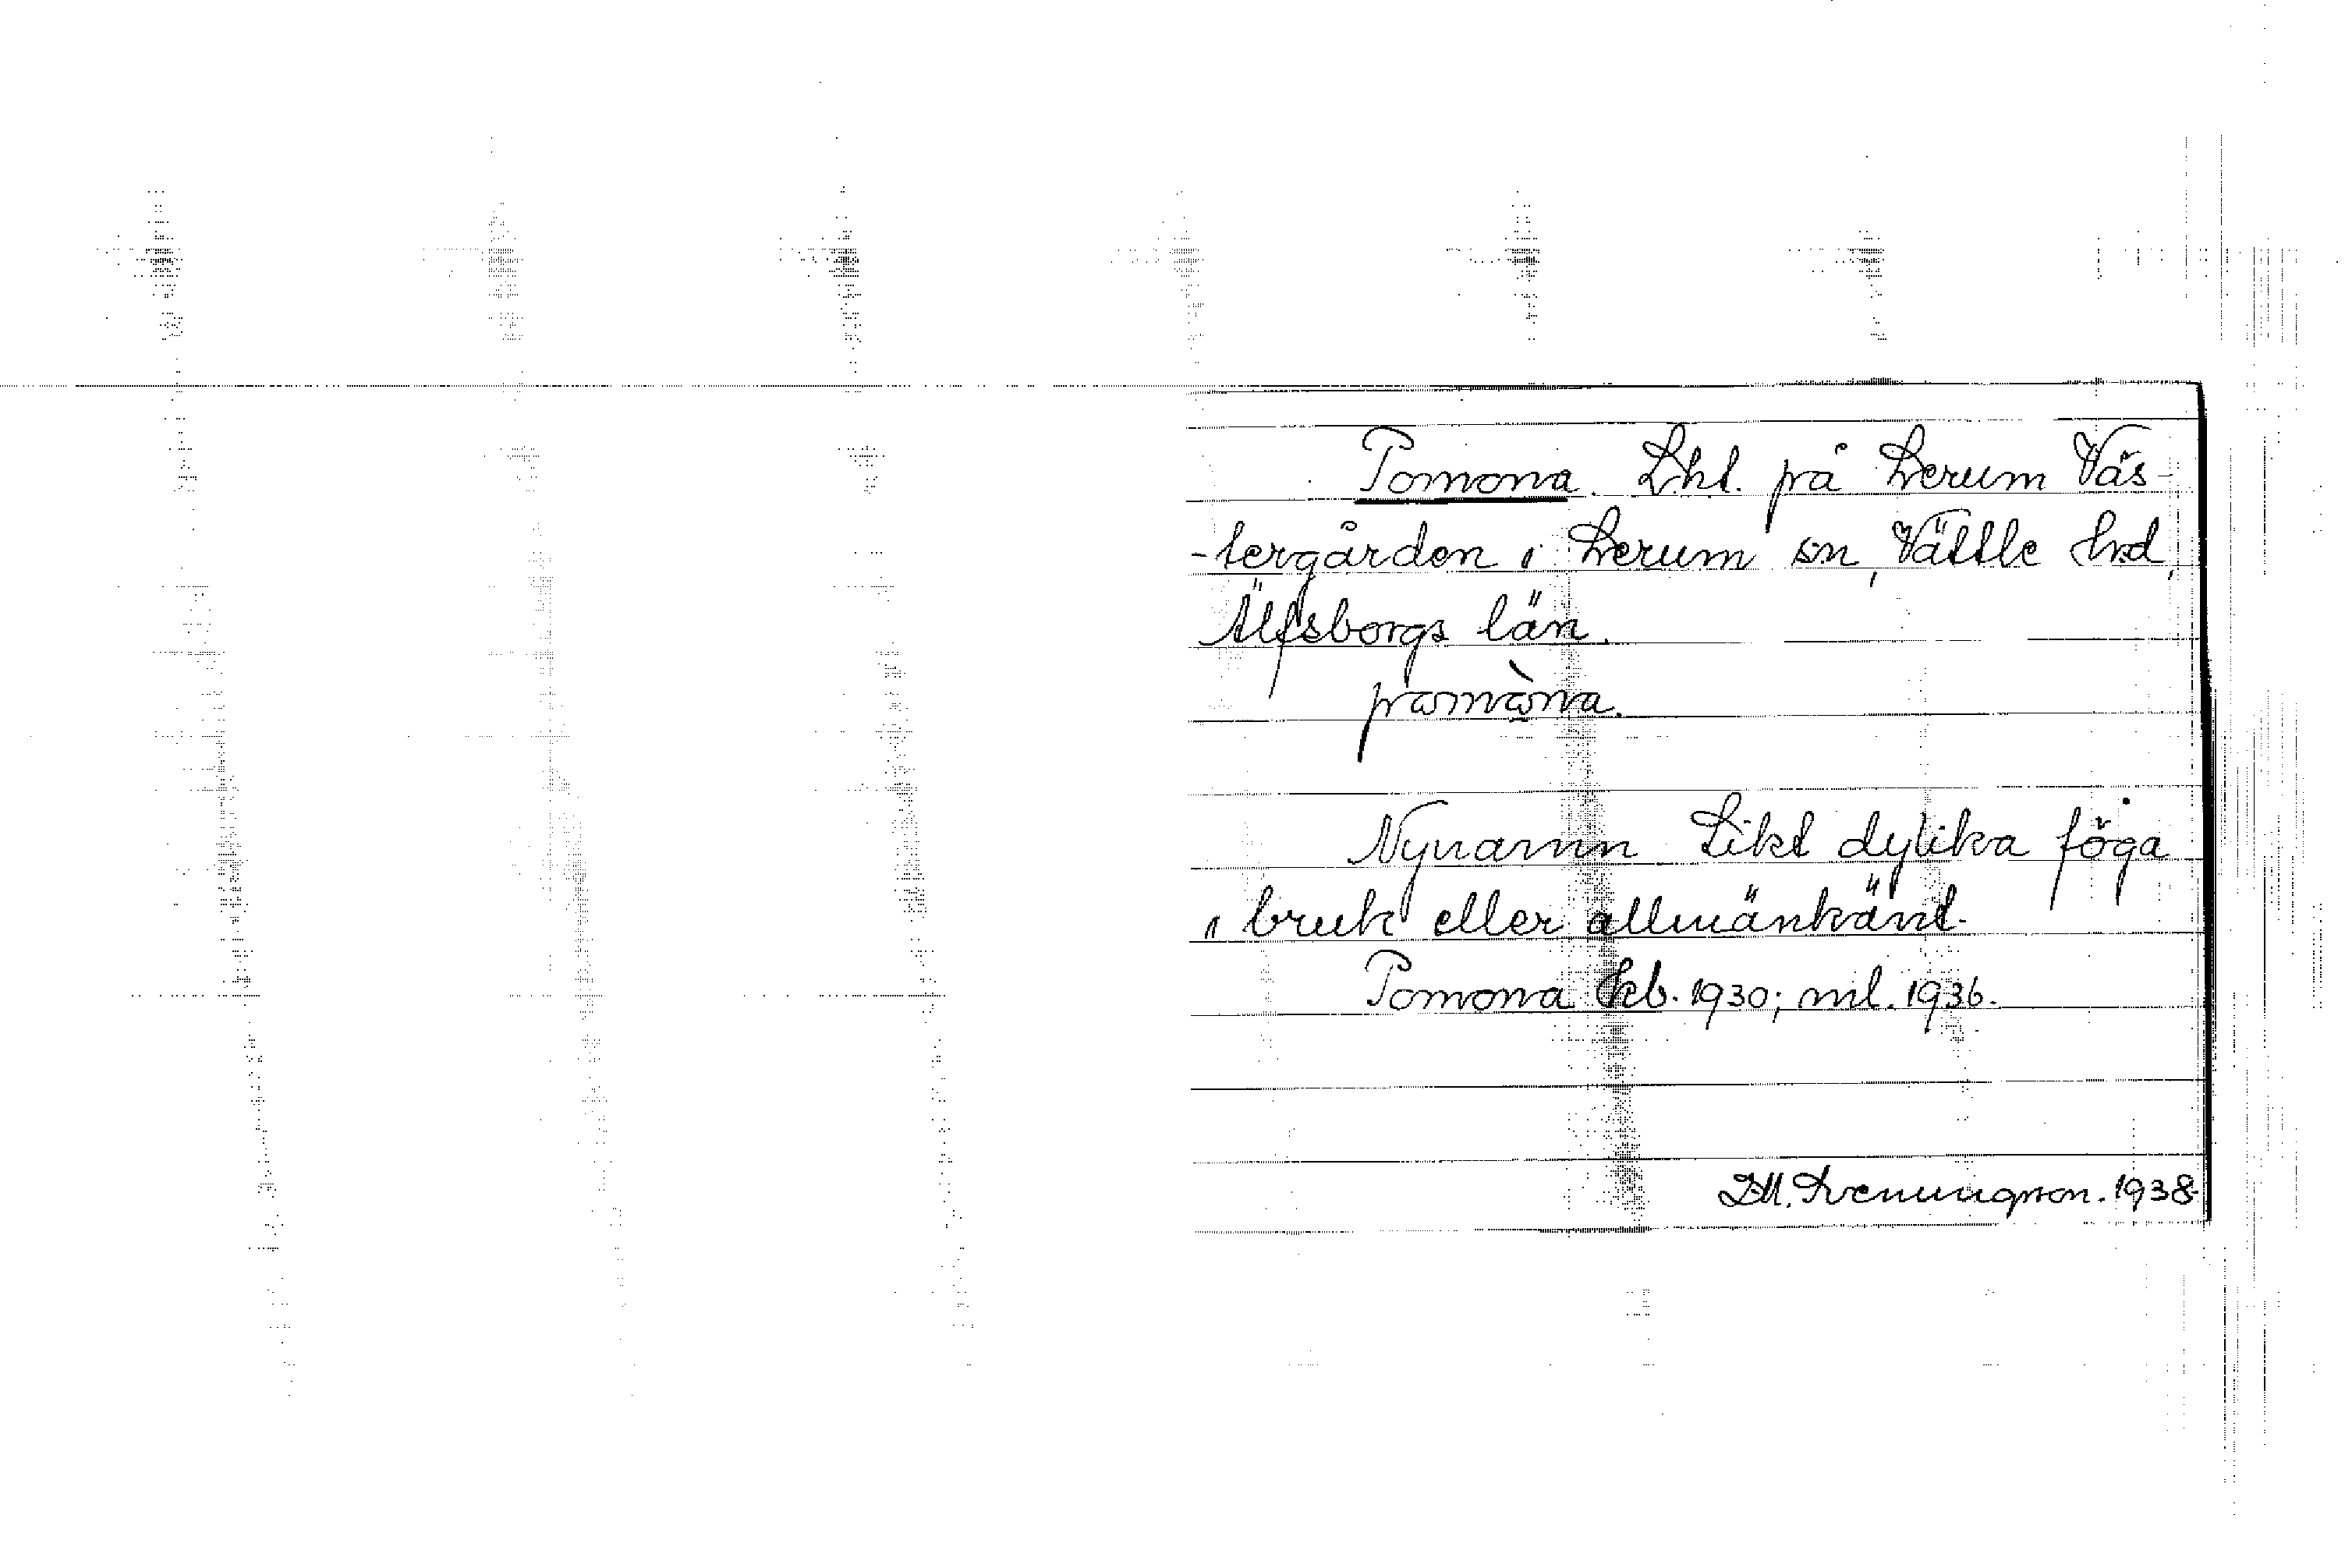 Pomona. Lht. på Lerum Väs-
-tergården i Lerum sn, Vättle hd,
Älfsborgs län.
pɷmɷ̀na.
Nynamn Likt dylika föga
i bruk eller allmänkänt.
Pomona kb. 1930; ml. 1936.
1938.